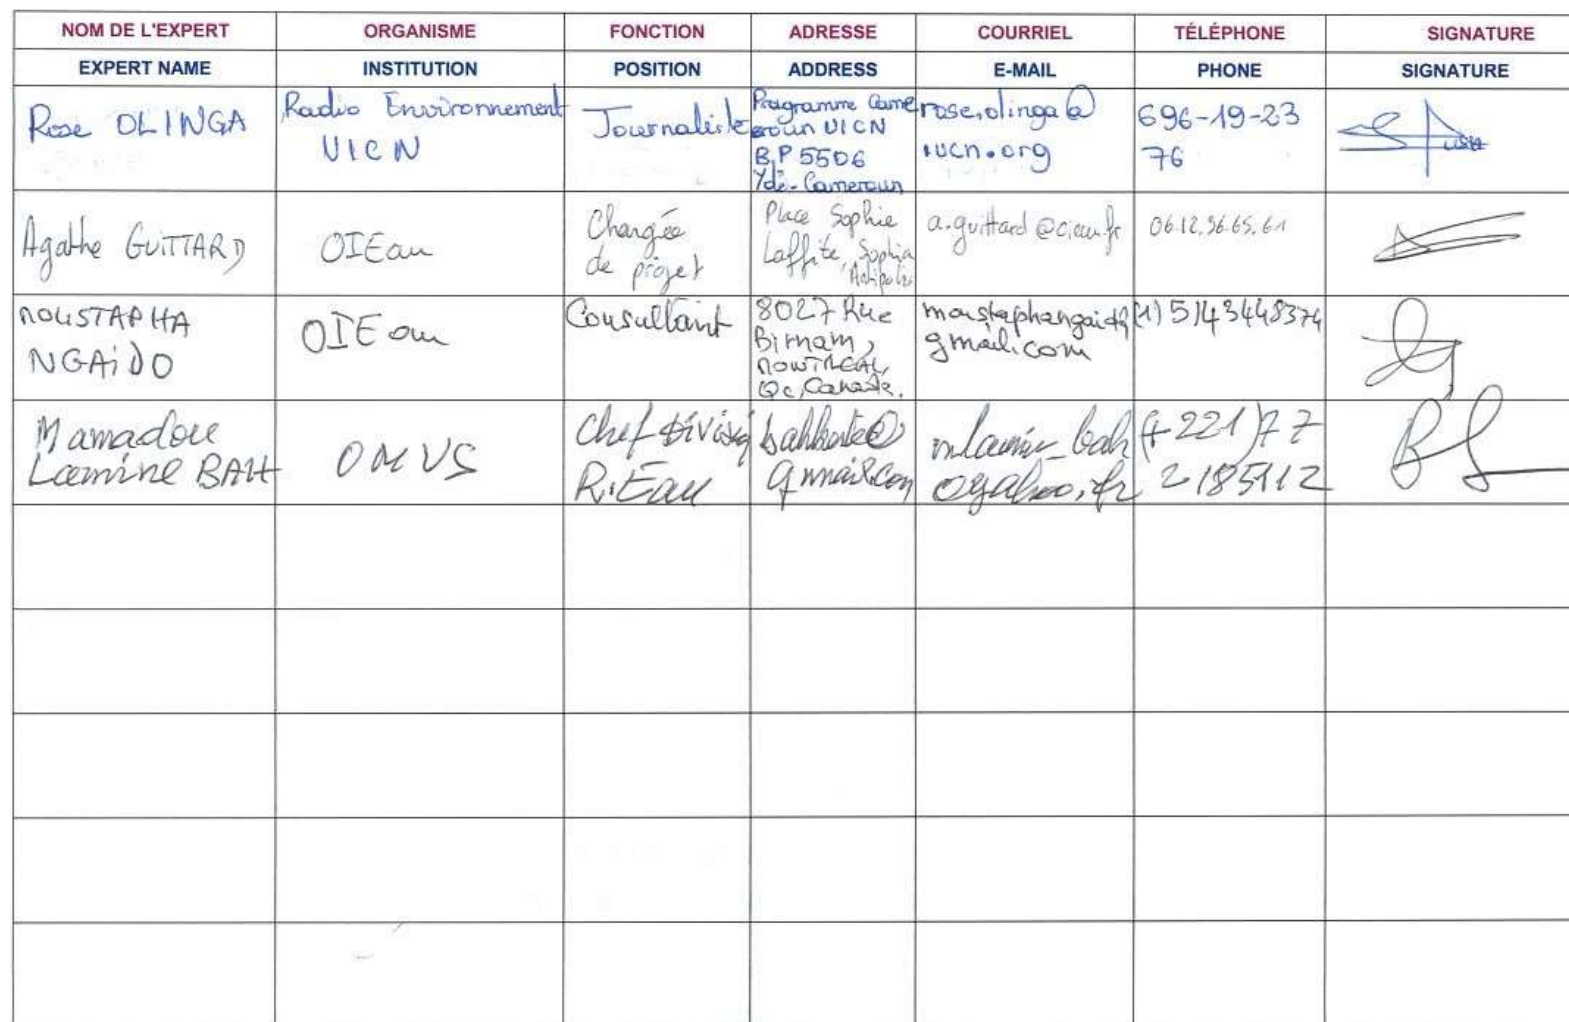 NOM DE L'EXPERT ORGANISME FONCTION ADRESSE COURRIEL TÉLÉPHONE SIGNATURE
EXPERT NAME INSTITUTION POSITION ADDRESS E-MAIL PHONE SIGNATURE
Rose OLINGA
Radio Environnement
UICN
Journaliste
Programme Came
roun UICN
B.P 5506
Ydé-Cameroun
rose.olinga@
iucn.org
696-19-23
76
Agathe GUITTARD
OIEau
Chargée
de projet
Place Sophie
Laffite, Sophia
Antipolis
a.guittard@oieau.fr
06.12.56.65.61
MOUSTAPHA
NGAiDO
OIEau
Consultant
8027 Rue
Birnam,
MONTREAL,
Qc, Canada.
gmail.com
(1) 5143448374
Mamadou
Lamine BAH
OMVS
Chef Division
R.Eau
gmail.com
mlamine_bah
@yahoo.fr
(+221) 77
2185112